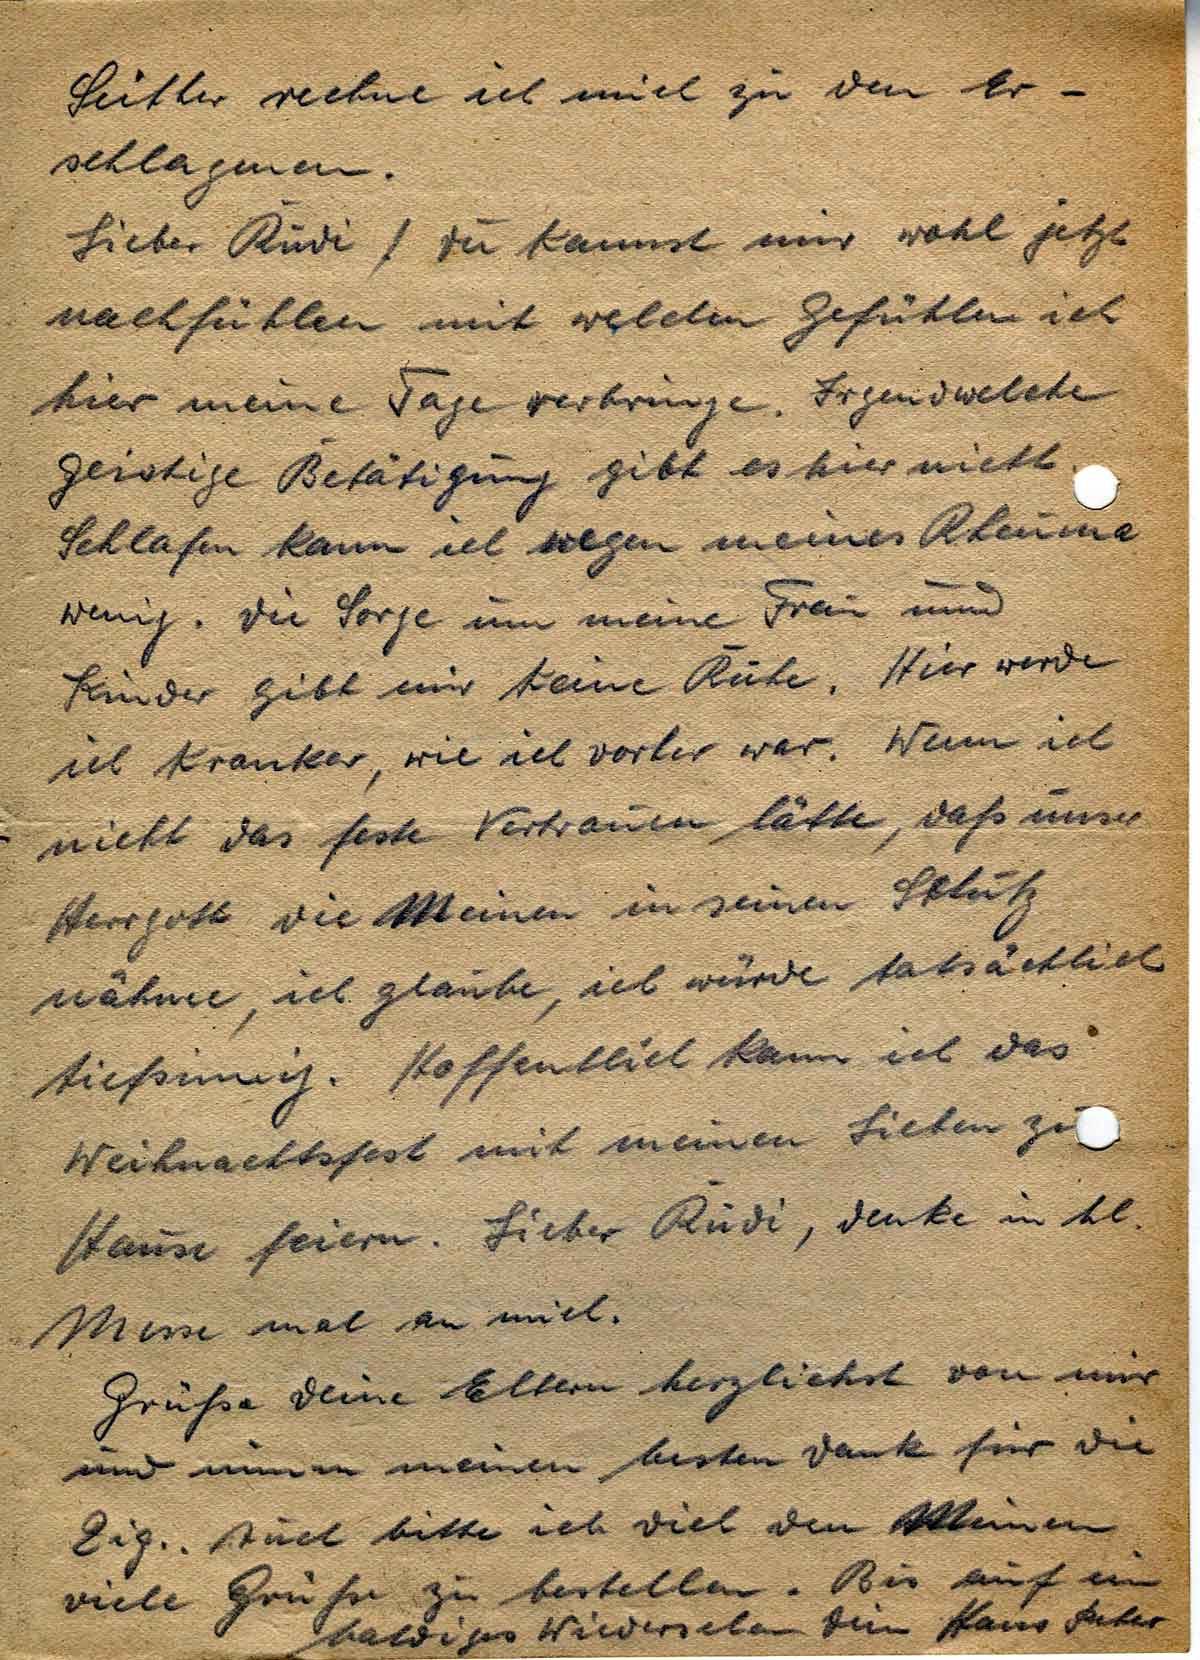 Seither rechne ich mich zu den Er-
schlagenen.
Lieber Rudi! du kannst mir wohl jetzt
nachfühlen mit welchen Gefühlen ich
hier meine Tage verbringe. Irgendwelche
geistige Betätigung gibt es hier nicht.
Schlafen kann ich wegen meines Rheuma
wenig. die Sorge um meine Frau und
Kinder gibt mir keine Ruhe. Hier werde
ich kranker, wie ich vorher war. Wenn ich
nicht das feste Vertrauen hätte, daß unser
Herrgott die Meinen in seinen Schutz
nähme, ich glaube, ich würde tatsächlich
tiefsinnig. Hoffentlich kann ich das
Weihnachtsfest mit meinen Lieben zu
Hause feiern. Lieber Rudi, denke in hl.
Messe mal an mich.
Grüße deine Eltern herzlichst von mir
und nimm meinen besten Dank für die
Zig.. Auch bitte ich dich den Meinen
viele Grüße zu bestellen. Bis auf ein
baldiges Wiedersehen dein Hans